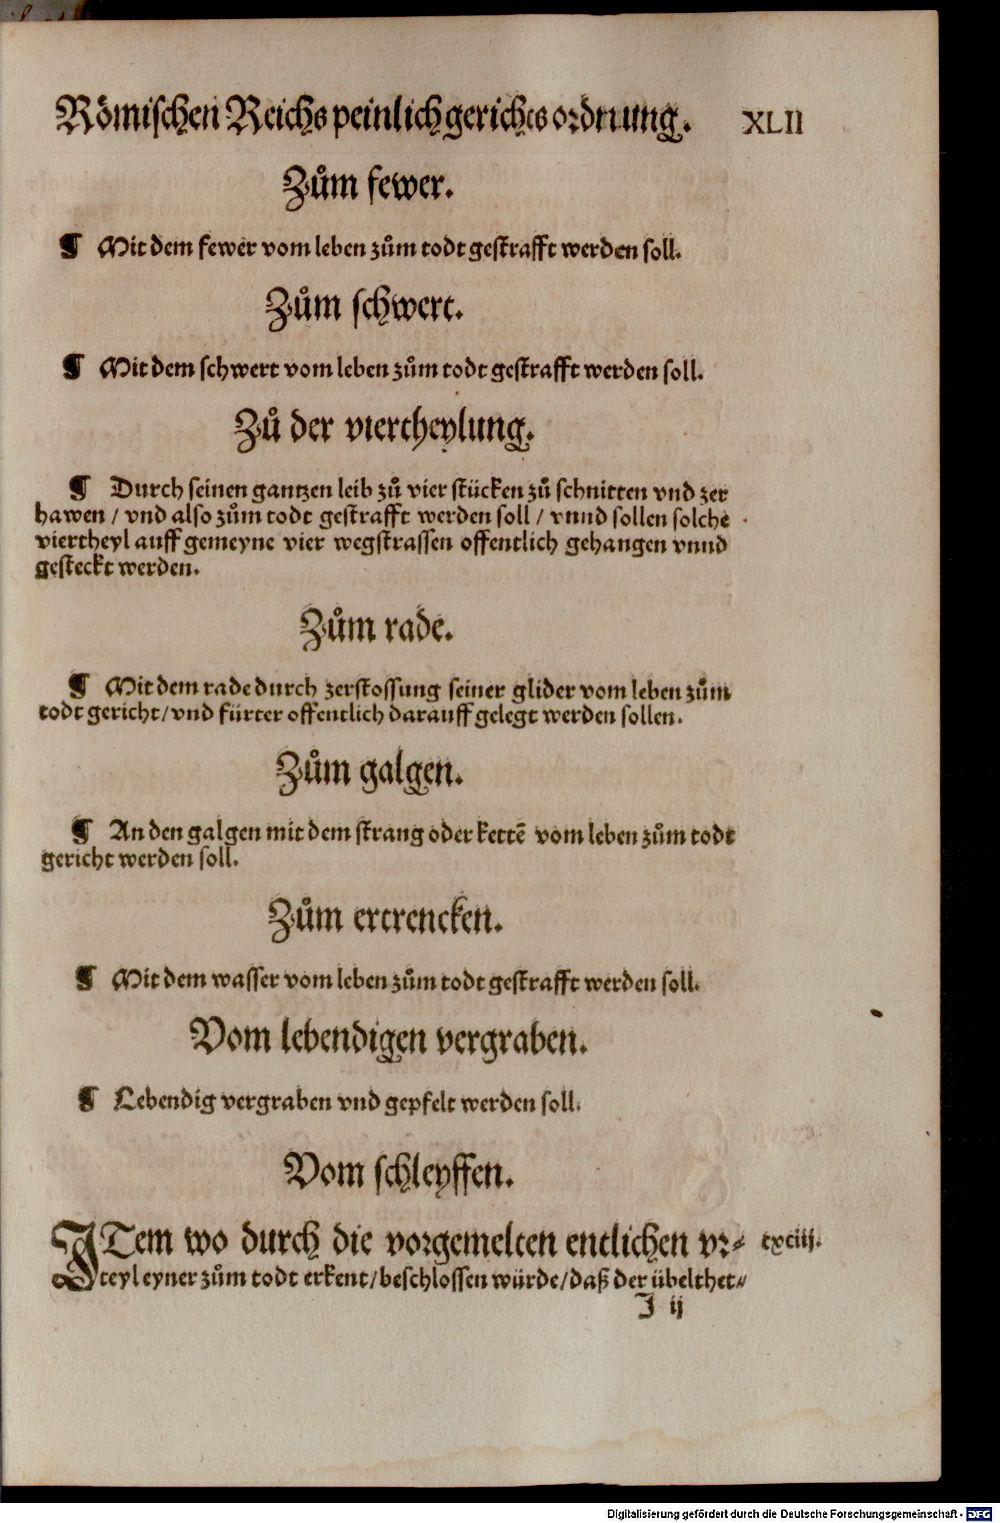 Römischen Reichs peinlich geriches ordnung. XLII
Zům fewer.
¶ Mit dem fewer vom leben zům todt gestrafft werden soll.
Zům schwert.
¶ Mit dem schwert vom leben zům todt gestrafft werden soll.
Zů der viertheylung.
¶ Durch seinen gantzen leib zů vier stücken zů schnitten vnd zer
hawen / vnd also zům todt gestrafft werden soll / vnnd sollen solche
viertheyl auff gemeyne vier wegstrassen offentlich gehangen vnnd
gesteckt werden.
Zům rade.
¶ Mit dem rade durch zerstossung seiner glider vom leben zům
todt gericht / vnd fürter offentlich darauff gelegt werden sollen.
Zům galgen.
¶ An den galgen mit dem strang oder kettē vom leben zům todt
gericht werden soll.
Zům ertrencken.
¶ Mit dem wasser vom leben zům todt gestrafft werden soll.
Vom lebendigen vergraben.
¶ Lebendig vergraben vnd gepfelt werden soll.
Vom schleyffen.
ITem wo durch die vorgemelten entlichen vr⸗ cxciij.
teyl eyner zům todt erkent / beschlossen würde / daß der übelthet⸗
J ij
Digitalisierung gefördert durch die Deutsche Forschungsgemeinschaft - DFG